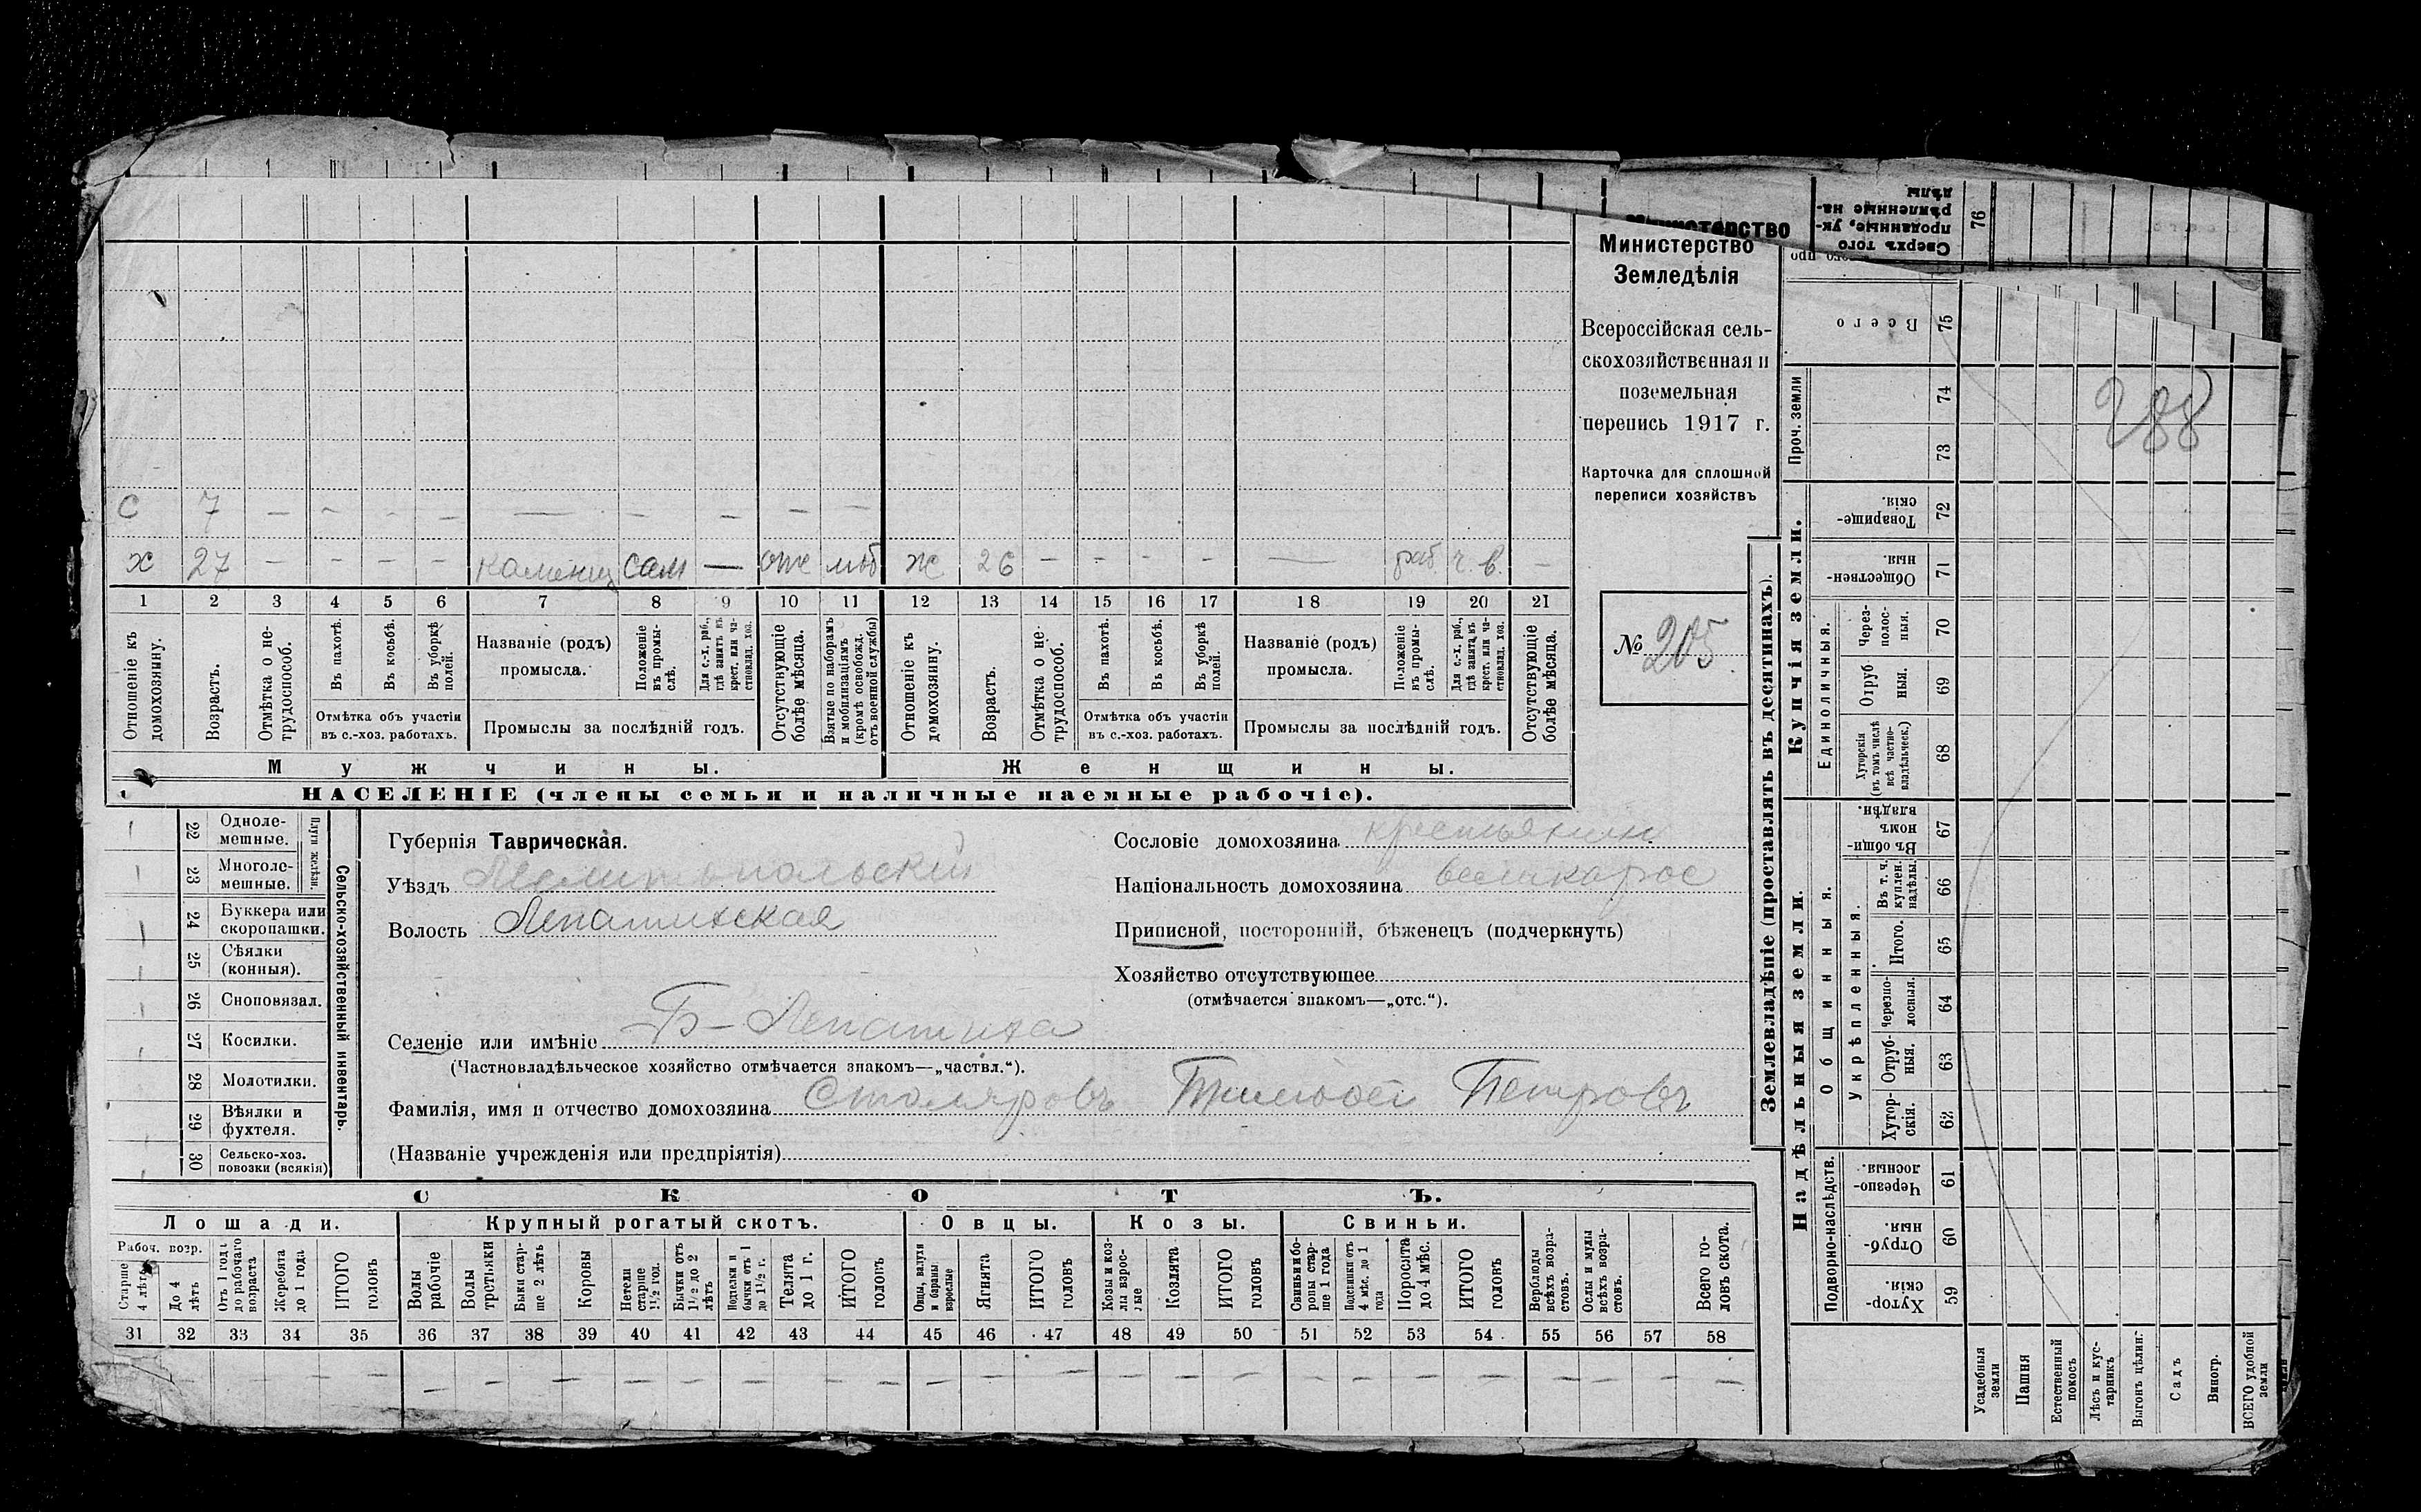 Министерство
Министерство
Земледѣлія
Всероссійская сель-
скохозяйственная и
поземельная
перепись 1917 г.
Карточка для сплошной
переписи хозяйствъ
№ 205
С 7 — — — — — — — — —
х 27 — — — — каменщ сам — оте моб ж 26 — — — — — раб. ч. в. —
1 2 3 4 5 6 7 8 9 10 11 12 13 14 15 16 17 18 19 20 21
Отношеніе къ домохозяину.
Возрастъ.
Отмѣтка о не-трудоспособ.
Въ пахотѣ.
Въ косьбѣ.
Въ уборкѣ полей.
Отмѣтка объ участіи
въ с.-хоз. работахъ.
Названіе (родъ)
промысла.
Положеніе въ промы-слѣ.
Для с.-х. раб., гдѣ занятъ въ крест. или ча-стновлад. хоз.
Промыслы за послѣдній годъ.
Отсутствующіе болѣе мѣсяца.
Взятые по наборамъ и мобилизаціямъ (кромѣ освобожд. отъ военной службы)
Отношеніе къ домохозяину.
Возрастъ.
Отмѣтка о не трудоспособ.
Въ пахотѣ.
Въ косьбѣ.
Въ уборкѣ полей.
Отмѣтка объ участіи
въ с.-хоз. работахъ.
Названіе (родъ)
промысла.
Положеніе въ промы-слѣ.
Для с.-х. раб., гдѣ занятъ въ крест. или ча-стновлад. хоз.
Промыслы за послѣдній годъ.
Отсутствующіе болѣе мѣсяца.
Мужчины.
Женщины.
НАСЕЛЕНІЕ (члены семьи и наличные наемные рабочіе).
Сельско-хозяйственный инвентарь.
Плуги желѣзн.
22 Однолемешные.
23 Многолемешные.
24 Буккера или скоропашки.
25 Сѣялки (конныя).
26 Сноповязал.
27 Косилки.
28 Молотилки.
29 Вѣялки и фухтеля.
30 Сельско-хоз. повозки (всякія)
Губернія Таврическая.
Уѣздъ Мелитопольскій
Волость Лепатихская
Селеніе или имѣніе Б-Лепатиха
(Частновладѣльческое хозяйство отмѣчается знакомъ—„частвл.“).
Фамилія, имя и отчество домохозяина Столяровъ Тимофей Петровъ
(Названіе учрежденія или предпріятія)
Сословіе домохозяина крестьянин
Національность домохозяина великорос
Приписной, посторонній, бѣженецъ (подчеркнуть)
Хозяйство отсутствующее
(отмѣчается знакомъ—„отс.“).
СКОТЪ.
Лошади.
Крупный рогатый скотъ.
Овцы.
Козы.
Свиньи.
Рабоч. возр.
Старше 4 лѣтъ
До 4 лѣтъ
Отъ 1 года до рабочаго возраста
Жеребята до 1 года
ИТОГО головъ
Волы рабочіе
Волы третьяки
Быки стар-ше 2 лѣтъ
Коровы
Нетели старше 1½ год.
Бычки отъ 1½ до 2 лѣтъ
Подтелки и бычки отъ 1 до 1½ г.
Телята до 1 г.
ИТОГО головъ
Овцы, валухи и бараны взрослые
Ягнята
ИТОГО головъ
Козы и коз-лы взрос-лые
Козлята
ИТОГО головъ
Свиньи и бо-ровы стар-ше 1 года
Подсвинки отъ 4 мѣс. до 1 года
Поросята до 4 мѣс.
ИТОГО головъ
Верблюды всѣхъ возра-стовъ.
Ослы и мулы всѣхъ возра-стовъ.
Всего го-ловъ скота.
31 32 33 34 35 36 37 38 39 40 41 42 43 44 45 46 47 48 49 50 51 52 53 54 55 56 57 58
Землевладѣніе (проставлять въ десятинахъ).
Надѣльныя земли.
Купчія земли.
Проч. земли
Подворно-наслѣдств.
Общинныя.
Укрѣпленныя.
Единоличныя.
59 Хутор-скія.
60 Отруб-ныя.
61 Черезпо-лосныя.
62 Хутор-скія.
63 Отруб-ныя.
64 Черезпо-лосныя.
65 Итого.
66 Въ т. ч. куплен. надѣлы
67 Въ общи-номъ владѣн.
68 Хуторскія (въ томъ числѣ всѣ частно-владѣльческ.)
69 Отруб ныя.
70 Через-полос-ныя.
71 Обществен-ныя.
72 Товарище-скія.
73
74
75 Всего
76
Сверхъ того проданные, ук-рѣпленные на-дѣлы
288
Усадебныя земли
Пашня
Естественный покосъ
Лѣсъ и кус-тарникъ
Выгонъ цѣлин.
Садъ
Виногр.
ВСЕГО удобной земли